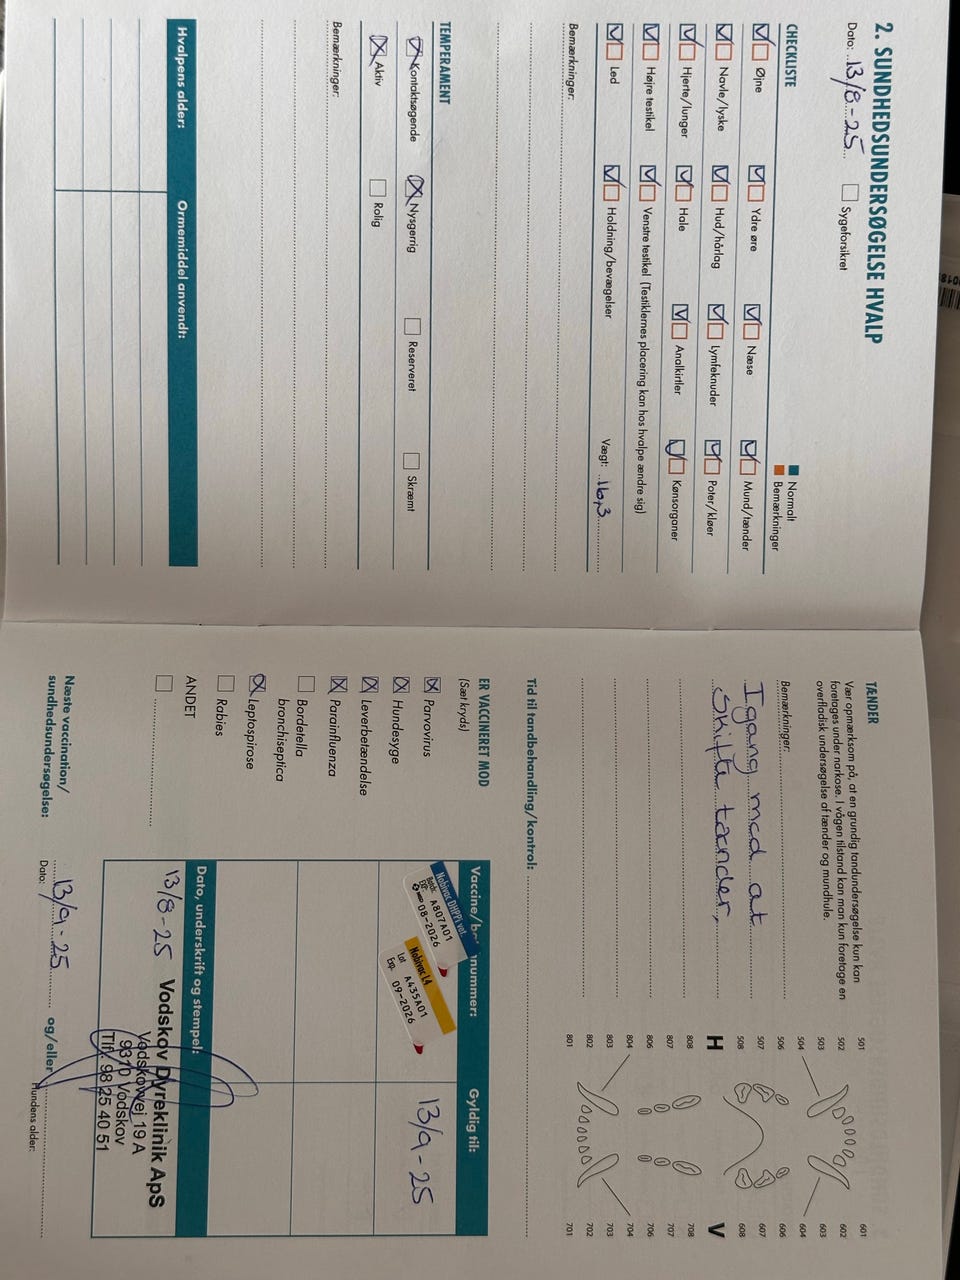 2. SUNDHEDSUNDERSØGELSE HVALP
Dato: 13/8-25 Sygeforsikret
CHECKLISTE
Normalt
Bemærkninger
Øjne Ydre øre Næse Mund/tænder
Navle/lyske Hud/hårlag Lymfeknuder Poter/kløer
Hjerte/lunger Hale Analkirtler Kønsorganer
Højre testikel Venstre testikel (Testiklernes placering kan hos hvalpe ændre sig)
Led Holdning/bevægelser Vægt: 16,3
Bemærkninger:
TEMPERAMENT
Kontaktsøgende Nysgerrig Reserveret Skræmt
Aktiv Rolig
Bemærkninger:
Hvalpens alder: Ormemiddel anvendt:
TÆNDER
Vær opmærksom på, at en grundig tandundersøgelse kun kan
foretages under narkose. I vågen tilstand kan man kun foretage en
overfladisk undersøgelse af tænder og mundhule.
Bemærkninger:
Igang med at
skifte tænder,
501 601
502 602
503 603
504 604
506 606
507 607
508 608
H V
808 708
807 707
806 706
804 704
803 703
802 702
801 701
Tid til tandbehandling/kontrol:
ER VACCINERET MOD
(Sæt kryds)
Parvovirus
Hundesyge
Leverbetændelse
Parainfluenza
Bordetella
bronchiseptica
Leptospirose
Rabies
ANDET
Vaccine/ nummer: Gyldig til:
Nobivac DHPPi vet
Batch A807A01
Exp. 08-2026
Nobivac L4
Lot A435A01
Exp. 09-2026
13/9-25
Dato, underskrift og stempel:
13/8-25 Vodskov Dyreklinik ApS
Vodskovvej 19 A
9310 Vodskov
Tlf. 98 25 40 51
Næste vaccination/
sundhedsundersøgelse:
13/9-25 og/eller
Dato: Hundens alder: